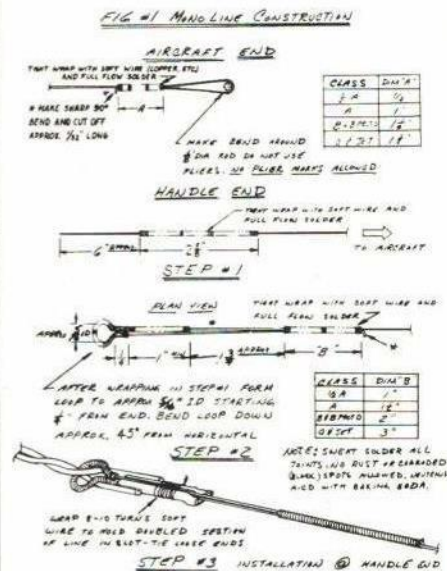 FIG #1 MONO LINE CONSTRUCTION
AIRCRAFT END
TIGHT WRAP WITH SOFT WIRE (COPPER, ETC)
AND FULL FLOW SOLDER
A
* MAKE SHARP 90°
BEND AND CUT OFF
APPROX. 1/32" LONG
MAKE BEND AROUND
DIA ROD DO NOT USE
PLIERS. NO PLIER MARKS ALLOWED
CLASS DIM "A"
A
HANDLE END
TIGHT WRAP WITH SOFT WIRE AND
FULL FLOW SOLDER
6" APPROX
TO AIRCRAFT
STEP #1
PLAN VIEW
TIGHT WRAP WITH SOFT WIRE AND
FULL FLOW SOLDER
APPROX
1"
APPROX
"B"
AFTER WRAPPING IN STEP #1 FORM
LOOP TO APPROX 5/16" ID STARTING
FROM END. BEND LOOP DOWN
APPROX. 45° FROM HORIZONTAL
CLASS DIM "B"
1/2 A 1"
A
2"
3"
STEP #2
NOTE: SWEAT SOLDER ALL
JOINTS. NO RUST OR CORRODED
(BLACK) SPOTS ALLOWED.
ACID WITH BAKING SODA.
WRAP 8-10 TURNS SOFT
WIRE TO HOLD DOUBLED SECTION
OF LINE IN SLOT-TIE LOOSE ENDS
STEP #3 INSTALLATION @ HANDLE END